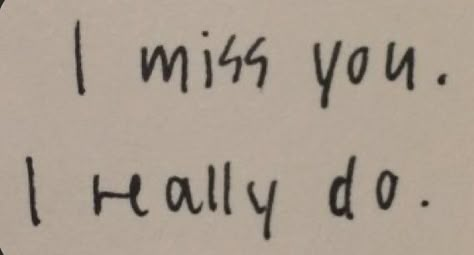 I miss you.
I really do.